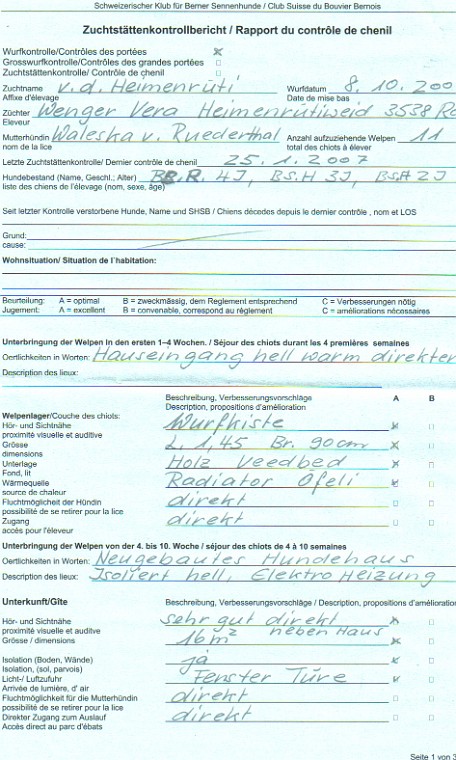 Schweizerischer Klub für Berner Sennenhunde / Club Suisse du Bouvier Bernois
Zuchtstättenkontrollbericht / Rapport du contrôle de chenil
Wurfkontrolle/Contrôles des portées
Grosswurfkontrolle/Contrôles des grandes portées
Zuchtstättenkontrolle/ Contrôle de chenil
Zuchtname v. d. Heimenrüti Wurfdatum 8. 10. 200
Affixe d'élevage Date de mise bas
Züchter Wenger Vera Heimenrütiweid 3538 Rö
Eleveur
Mutterhündin Waleska v. Ruederthal Anzahl aufzuziehende Welpen 11
nom de la lice total des chiots à élever
Letzte Zuchtstättenkontrolle/ Dernier contrôle de chenil 25. 1. 2007
Hundebestand (Name, Geschl.; Alter) R. 4J, BS.H 3J, BS.H 2J
liste des chiens de l'élevage (nom, sexe, âge)
Seit letzter Kontrolle verstorbene Hunde, Name und SHSB / Chiens décedes depuis le dernier contrôle , nom et LOS
Grund:
cause:
Wohnsituation/ Situation de l`habitation:
Beurteilung: A = optimal B = zweckmässig, dem Reglement entsprechend C = Verbesserungen nötig
Jugement: A = excellent B = convenable, correspond au règlement C = améliorations nécossaires
Unterbringung der Welpen in den ersten 1–4 Wochen. / Séjour des chiots durant les 4 premières semaines
Oertlichkeiten in Worten: Hauseingang hell warm direkter
Description des lieux:
Beschreibung, Verbesserungsvorschläge A B
Description, propositions d'amélioration
Welpenlager/Couche des chiots:
Hör- und Sichtnähe Wurfkiste
proximité visuelle et auditive
Grösse L. 1,45 Br. 90cm
dimensions
Unterlage Holz Veedbed
Fond, lit
Wärmequelle Radiator Öfeli
source de chaleur
Fluchtmöglichkeit der Hündin direkt
possibilité de se retirer pour la lice
Zugang direkt
accès pour l'éleveur
Unterbringung der Welpen von der 4. bis 10. Woche / séjour des chiots de 4 à 10 semaines
Oertlichkeiten in Worten: Neugebautes Hundehaus
Description des lieux: Isoliert hell, Elektro Heizung
Unterkunft/Gîte Beschreibung, Verbesserungsvorschläge / Description, propositions d'amélioration
A B
Hör- und Sichtnähe sehr gut direkt
proximité visuelle et auditve neben Haus
Grösse / dimensions 16m²
Isolation (Boden, Wände) ja
Isolation, (sol, parvois)
Licht-/ Luftzufuhr Fenster Türe
Arrivée de lumière, d' air
Fluchtmöglichkeit für die Mutterhündin direkt
possibilité de se retirer pour la lice
Direkter Zugang zum Auslauf direkt
Accès direct au parc d'ébats
Seite 1 von 3